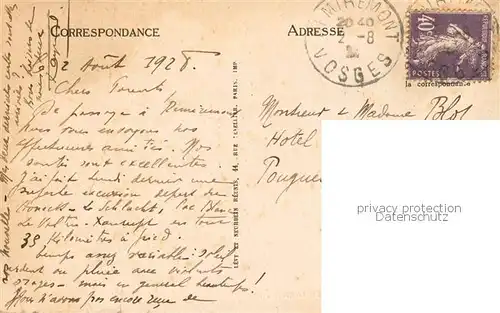 CORRESPONDANCE
2 Août 1928.
Chers Parents,
De passage à Remiremont
nous vous envoyons nos
affectueuses amitiés. Nos
santés sont excellentes.
J'ai fait lundi dernier une
parfaite excursion départ du
Honneck - la Schlucht, Lac Blanc
Le Valtin - Xanrupt en tout
33 kilomètres à pied.
Temps assez variable: soleil
ardent ou pluie avec violents
orages - mais en général beau temps!
Nous n'avons pas encore reçu de
vos nouvelles
LÉVY ET NEURDEIN RÉUNIS, 44, RUE LETELLIER, PARIS, IMP.
ADRESSE
REMIREMONT
20 40
2 -8
VOSGES
40c
POSTES
la correspondance
Monsieur & Madame Blot
Hotel
Pougues
privacy protection
Datenschutz